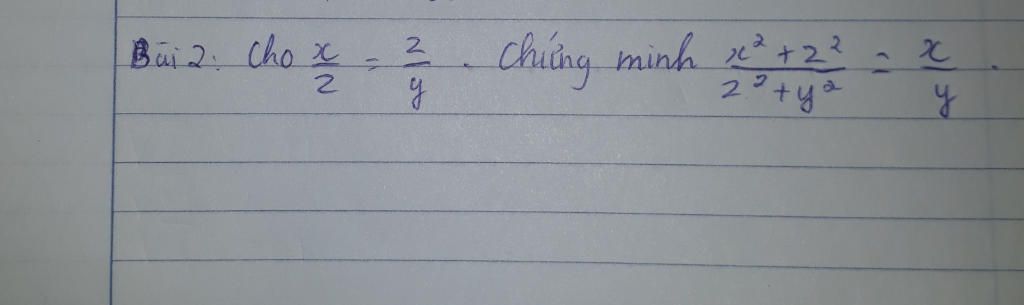 Bài 2: Cho x/2 = 2/y. Chứng minh (x² + 2²)/(2² + y²) = x/y.